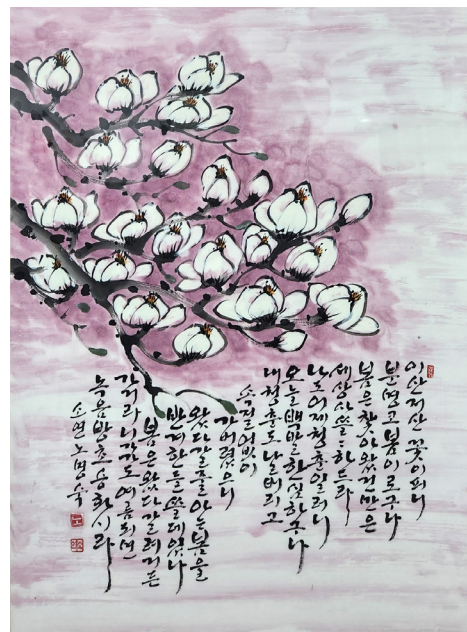 이산저산 꽃이피니
분명코 봄이로구나
봄은 찾아왔건만은
세상사 쓸쓸하드라
나도 어제 청춘일러니
오늘 백발 한심하구나
내청춘도 날버리고
속절없이
가버렸으니
왔다갈줄 아는 봄을
반겨한들 쓸데있나
봄은 왔다 갈려거든
가거라 니가가도 여름되면
녹음방초 승화시라
소연 노명숙